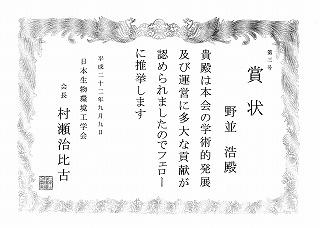 第三号
賞状
野並 浩殿
貴殿は本会の学術的発展
及び運営に多大な貢献が
認められましたのでフェロー
に推挙します
平成二十二年九月九日
日本生物環境工学会
会長 村瀬治比古